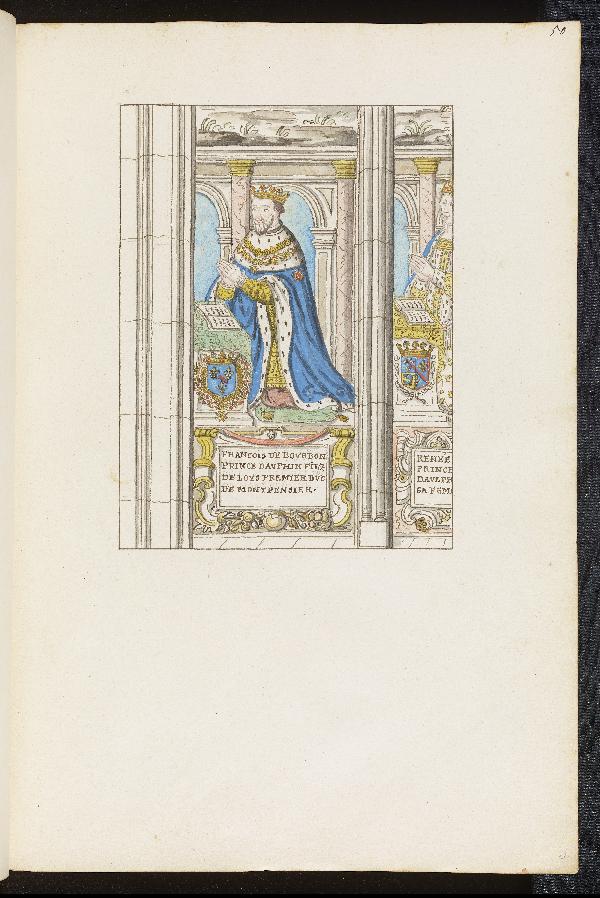 50
FRANCOIS DE BOVRBON
PRINCE DAVPHIN FILZ
DE LOYS PREMIER DVC
DE MONTPENSIER·
RENEE
PRINCE
DAVLPH
SA FEM